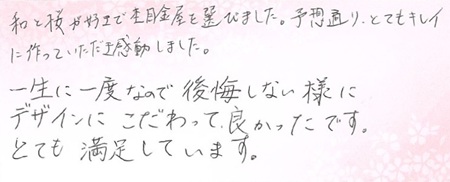 和と桜が好きで杢目金屋を選びました。予想通り、とてもキレイ
に作っていただき感動しました。
一生に一度なので後悔しない様に
デザインにこだわって良かったです。
とても満足しています。